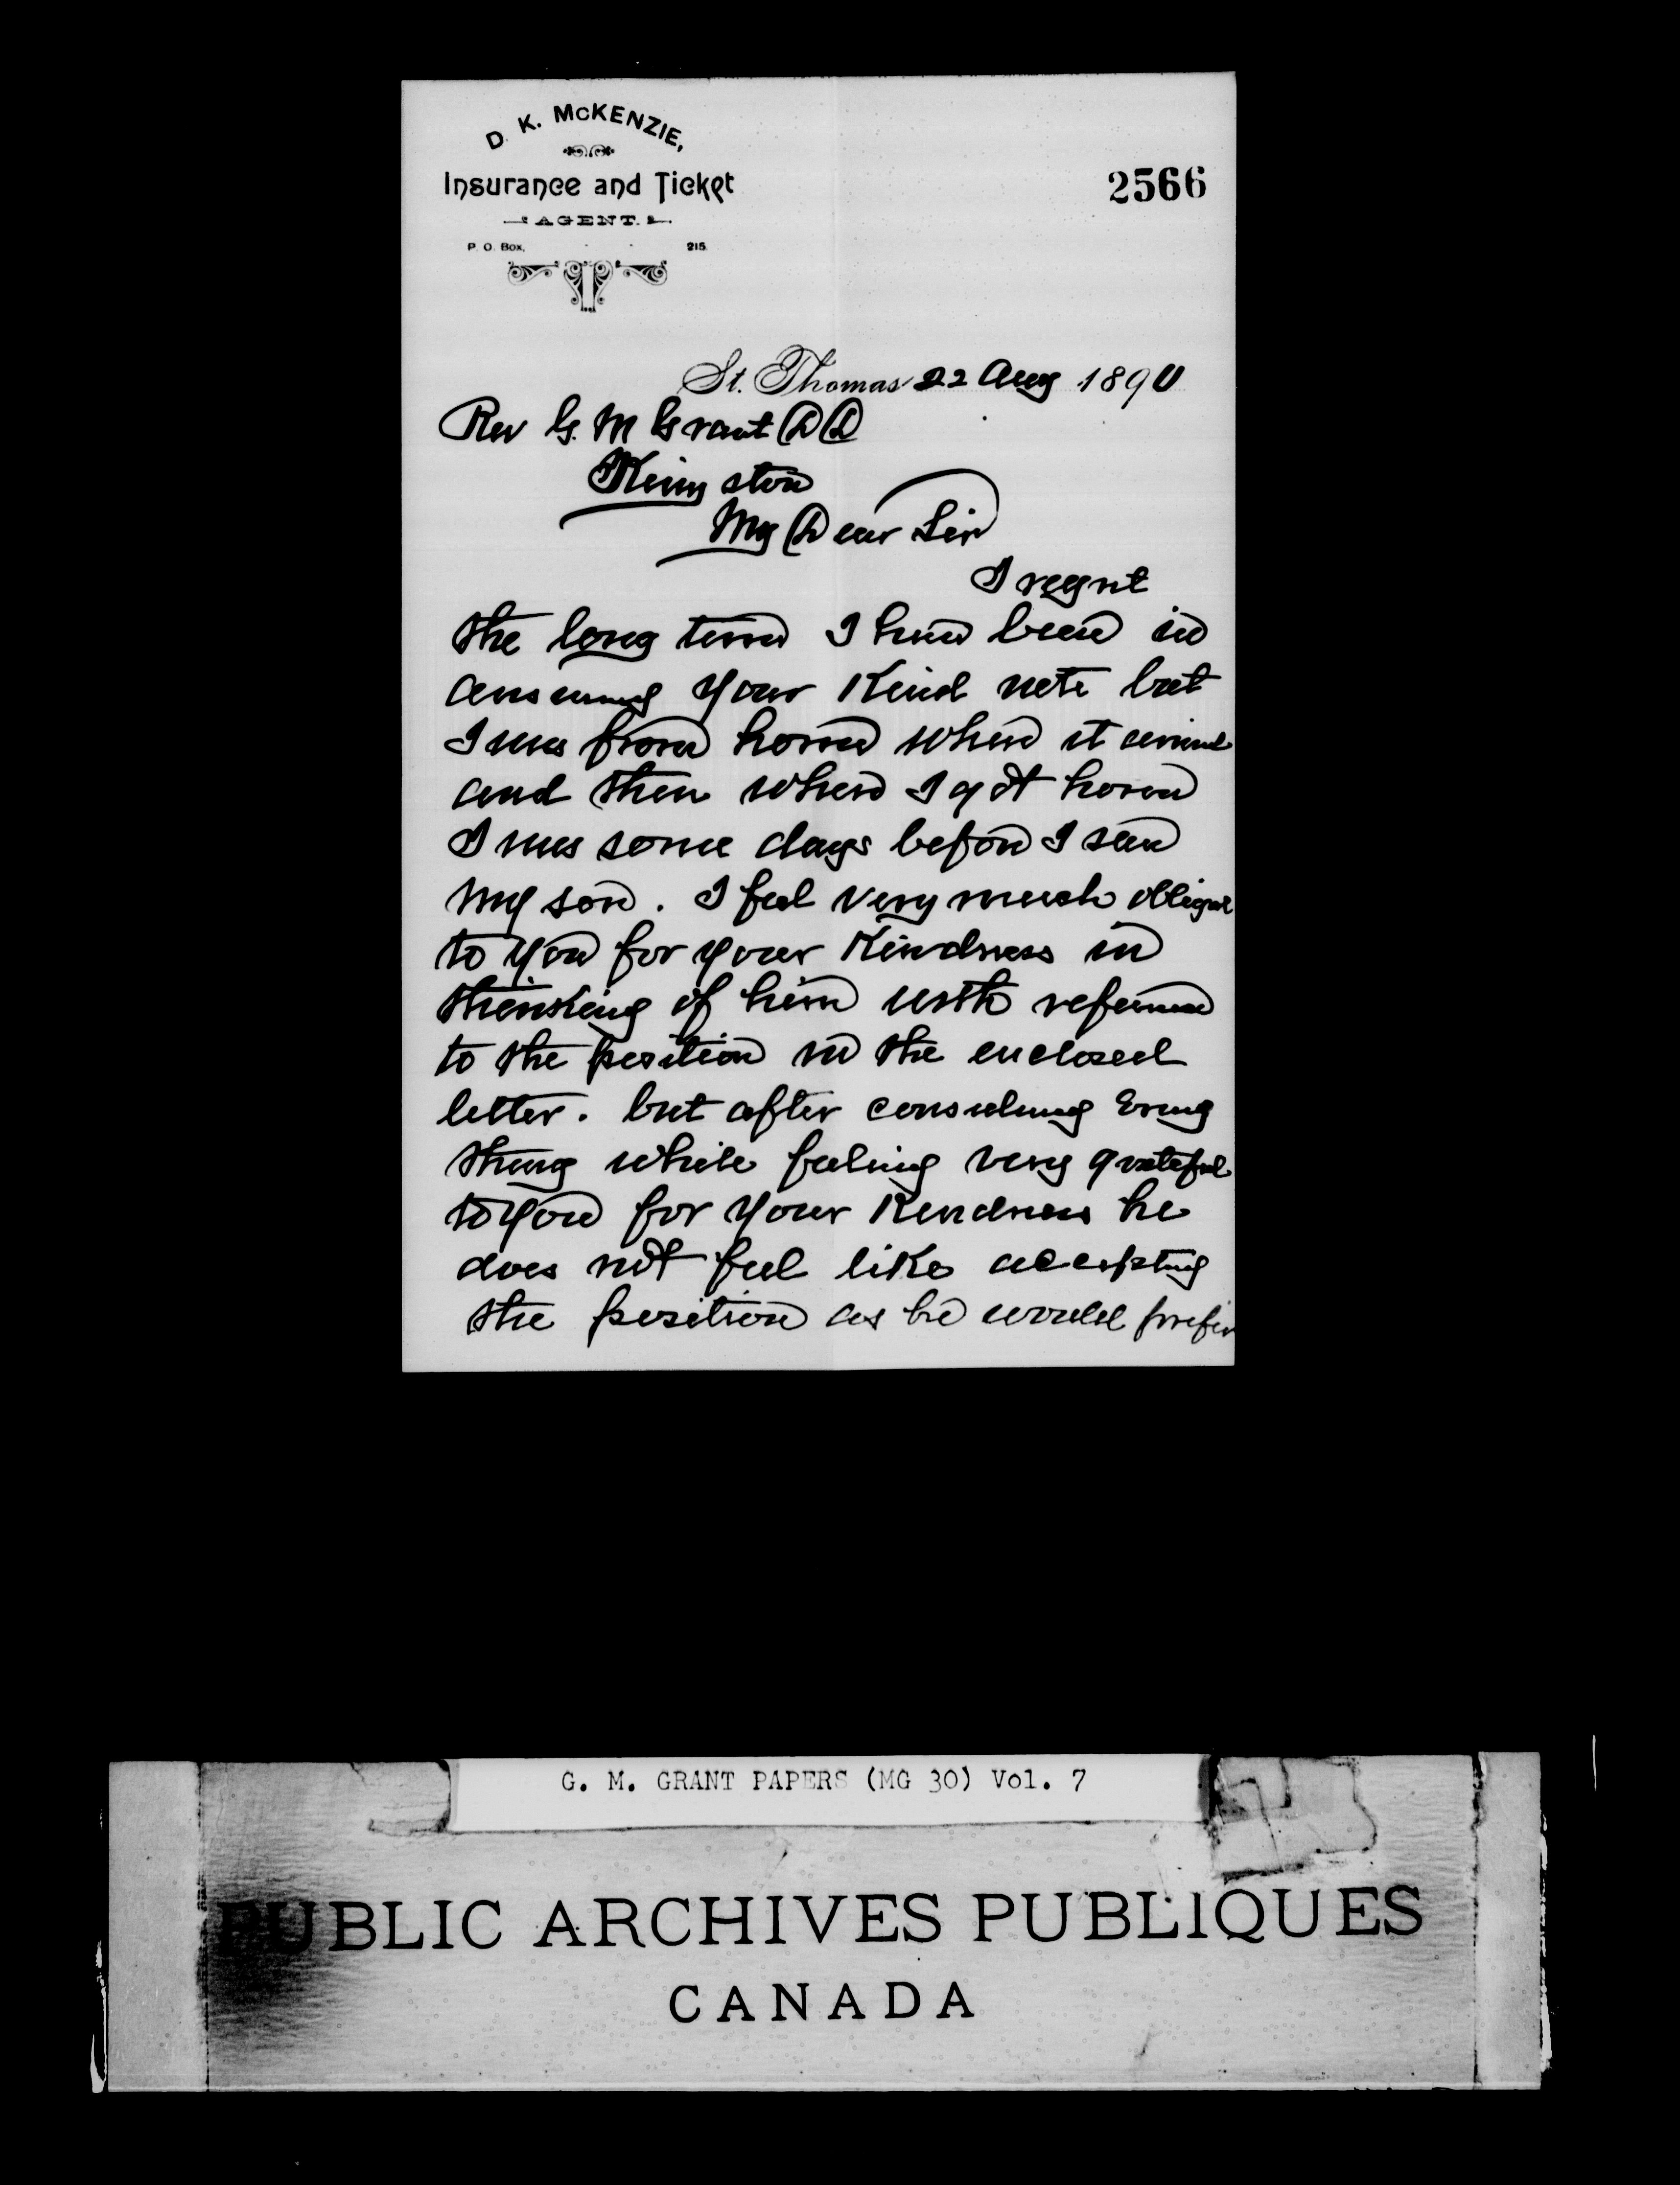 D. K. McKENZIE,
Insurance and Ticket
AGENT.
P. O. Box, 215.
2566
St. Thomas 22 Aug 1890
Rev G. M Grant D D
Kingston
My Dear Sir
I regret
the long time I have been in
answering your Kind note but
I was from home when it arrived
and then when I got home
I was some days before I seen
my son. I feel very much obliged
to you for your Kindness in
thinking of him with reference
to the position in the enclosed
letter. but after considering Every
thing while feeling very grateful
to you for your Kindness he
does not feel like accepting
the position as he would prefer
G. M. GRANT PAPERS (MG 30) Vol. 7
PUBLIC ARCHIVES PUBLIQUES
CANADA